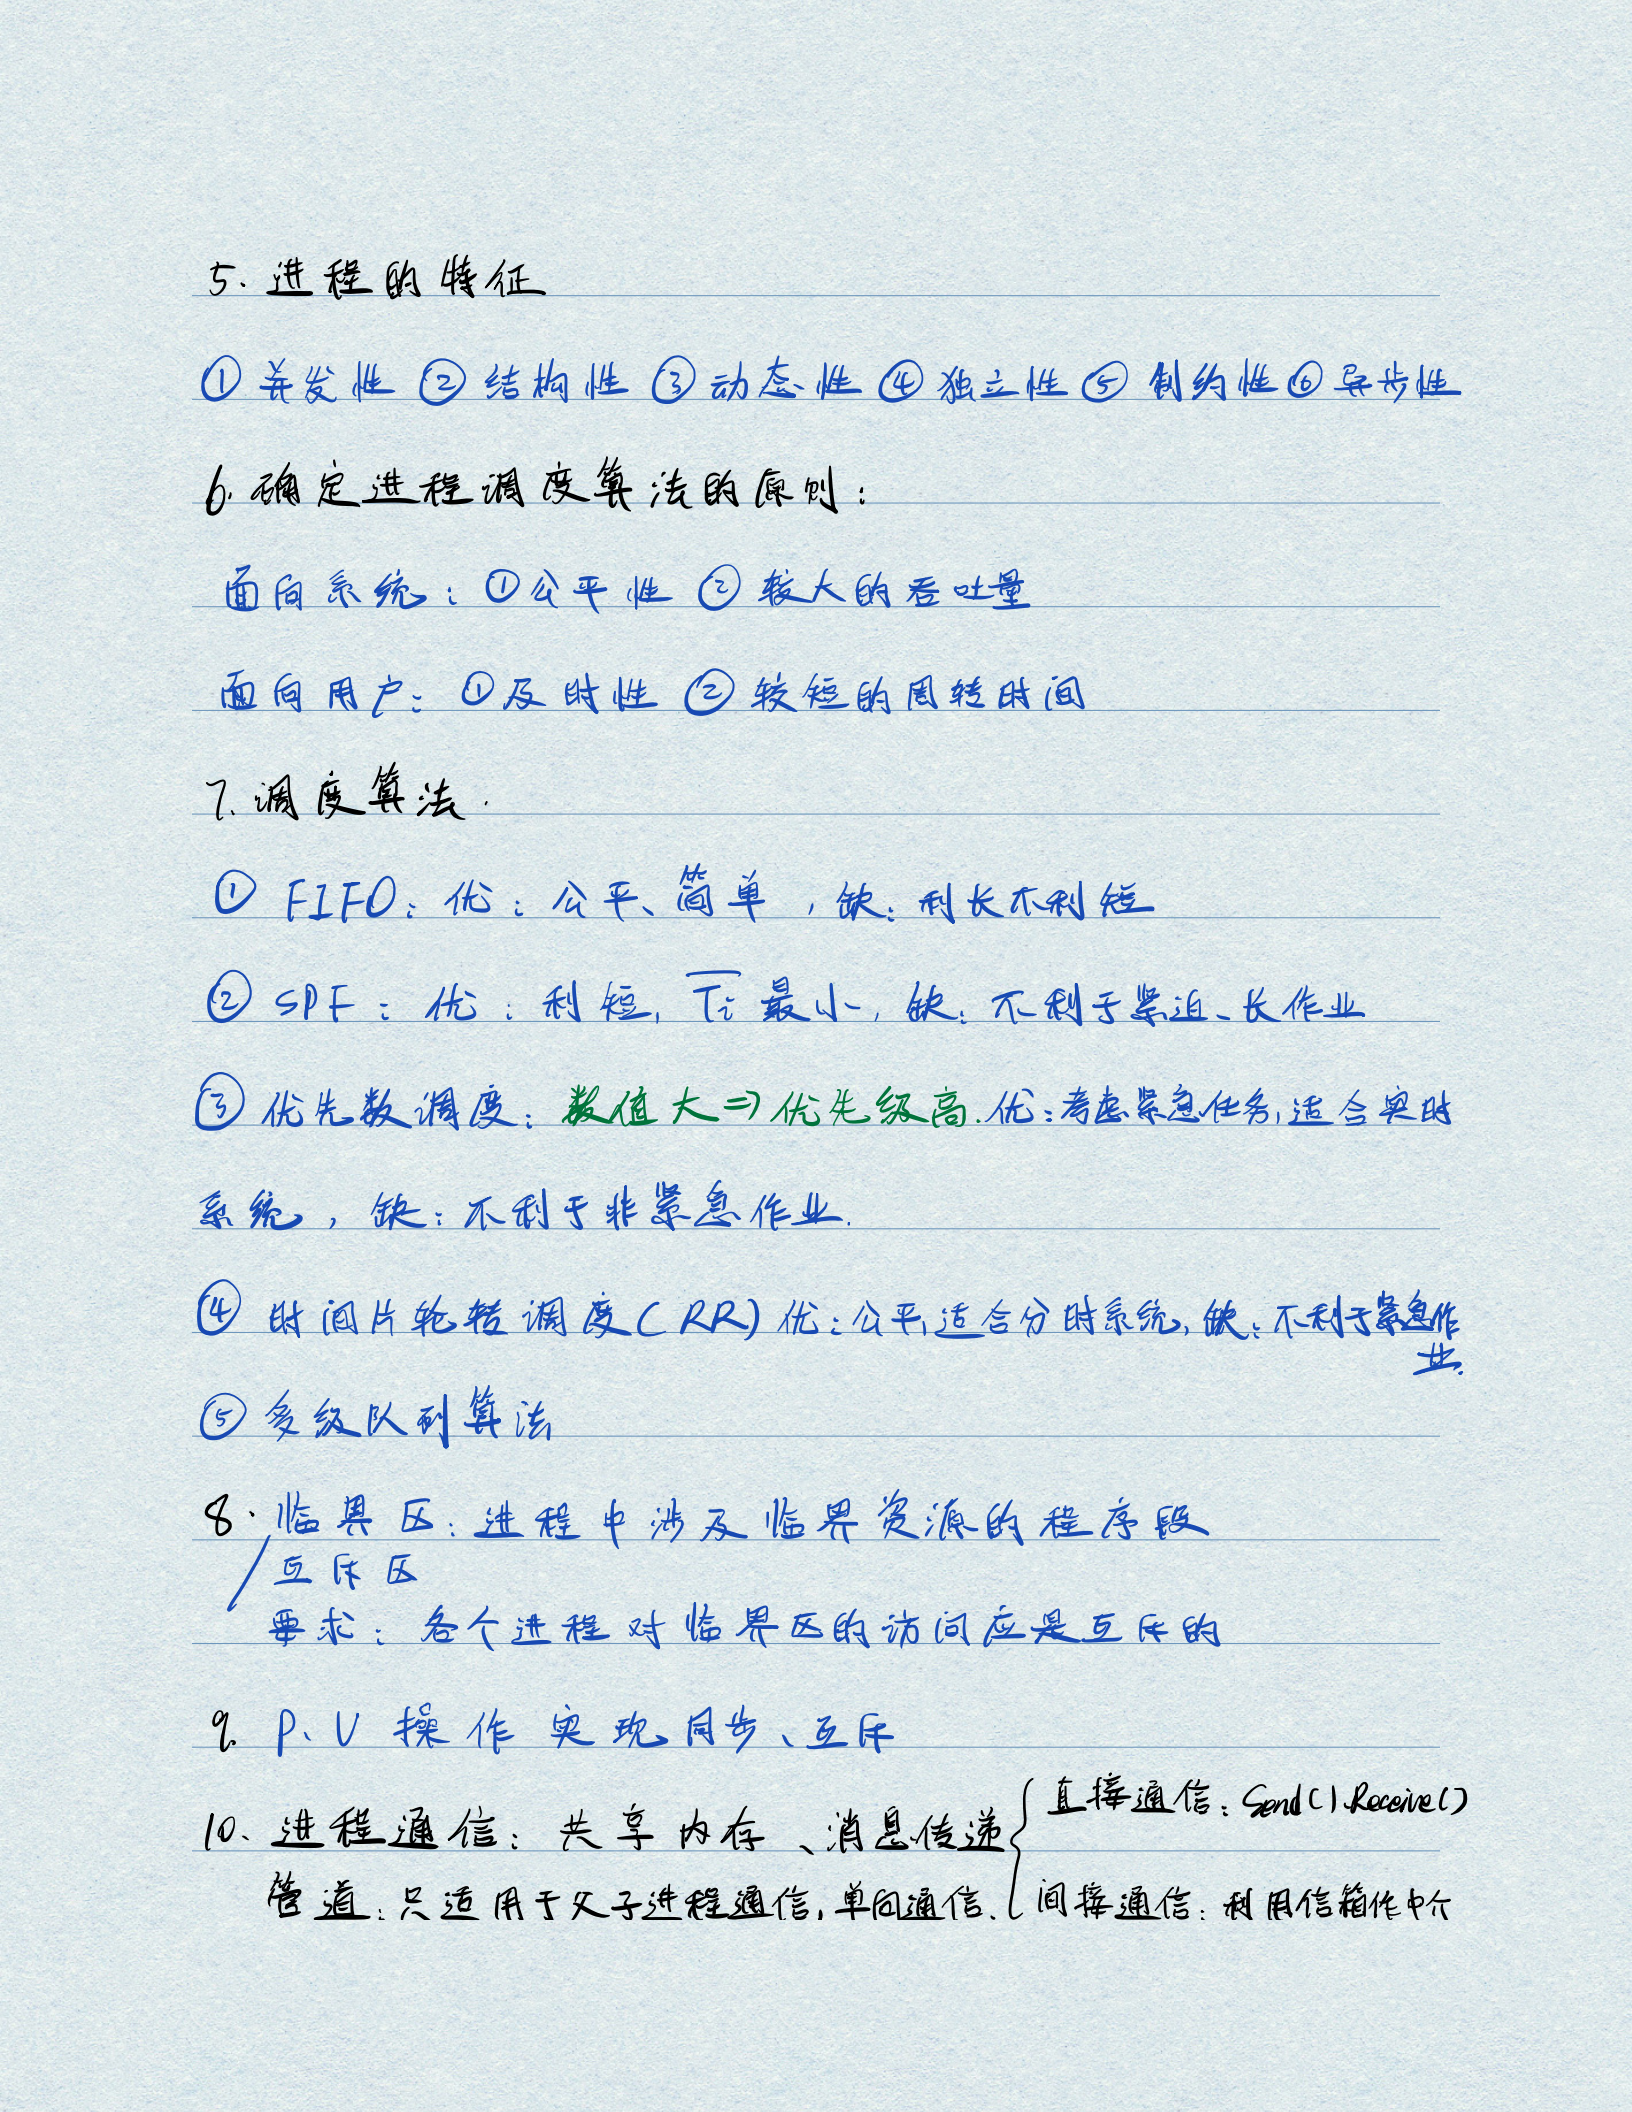 5. 进程的特征
① 并发性 ② 结构性 ③ 动态性 ④ 独立性 ⑤ 制约性 ⑥ 异步性
6. 确定进程调度算法的原则：
面向系统：① 公平性 ② 较大的吞吐量
面向用户：① 及时性 ② 较短的周转时间
7. 调度算法.
① FIFO：优：公平、简单，缺：利长不利短
② SPF：优：利短, T̅i̅ 最小, 缺：不利于紧迫、长作业
③ 优先数调度：数值大 ⇒ 优先级高. 优：考虑紧急任务, 适合实时
系统，缺：不利于非紧急作业.
④ 时间片轮转调度(RR) 优：公平, 适合分时系统, 缺：不利于紧急作
业.
⑤ 多级队列算法
8. 临界区：进程中涉及临界资源的程序段
互斥区
要求：各个进程对临界区的访问应是互斥的
9. P、V 操作 实现同步、互斥
10. 进程通信：共享内存、消息传递 { 直接通信：Send()、Receive()
管道：只适用于父子进程通信, 单向通信. 间接通信：利用信箱作中介